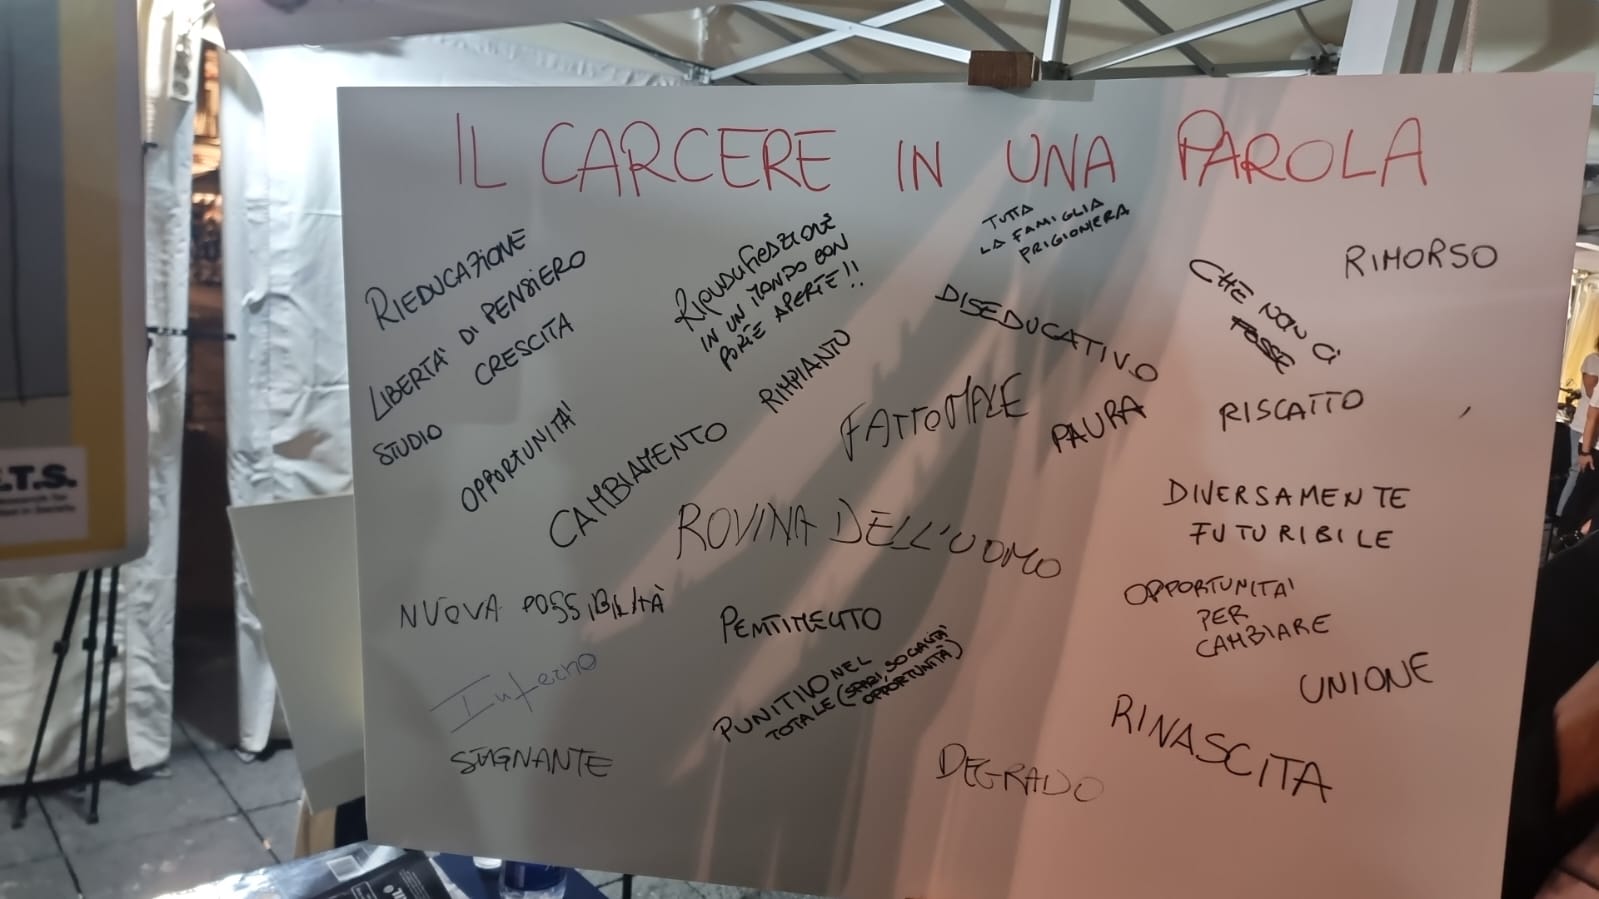 IL CARCERE IN UNA PAROLA
RIEDUCAZIONE
LIBERTA' DI PENSIERO
CRESCITA
STUDIO
OPPORTUNITA'
CAMBIAMENTO
IN UN MONDO CON
PORTE APERTE!!
RIMPIANTO
TUTTA
LA FAMIGLIA
PRIGIONIERA
DISEDUCATIVO
CHE NON CI
FOSSE
RIMORSO
FATTOMALE
PAURA
RISCATTO
ROVINA DELL'UOMO
DIVERSAMENTE
FUTURIBILE
NUOVA POSSIBILITÀ
PENTIMENTO
OPPORTUNITA'
PER
CAMBIARE
Inferno
PUNITIVO NEL
TOTALE (SPAZI, SOCIALITA'
OPPORTUNITÀ)
UNIONE
STAGNANTE
DEGRADO
RINASCITA
.T.S.